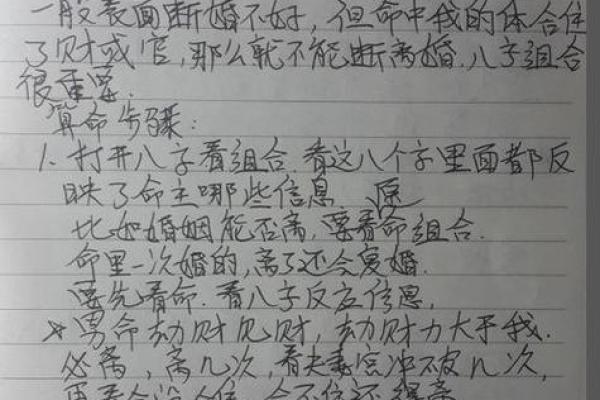 一般表面断婚不好，但命中我的体合住
了财或官，那么就不能断离婚.八字组合
很重要.
算命步骤：
1、打开八字看组合.看这八个字里面都反
映了命主哪些信息 原
比如婚姻能否离，要看命组合.
命里一次婚的，离了还会复婚.
要先看命.看八字反应信息，
★男命劫财见财，劫财力大于我.
必离，离几次，看夫妻宫冲不破几次，
再看合没合住，合不住还得离